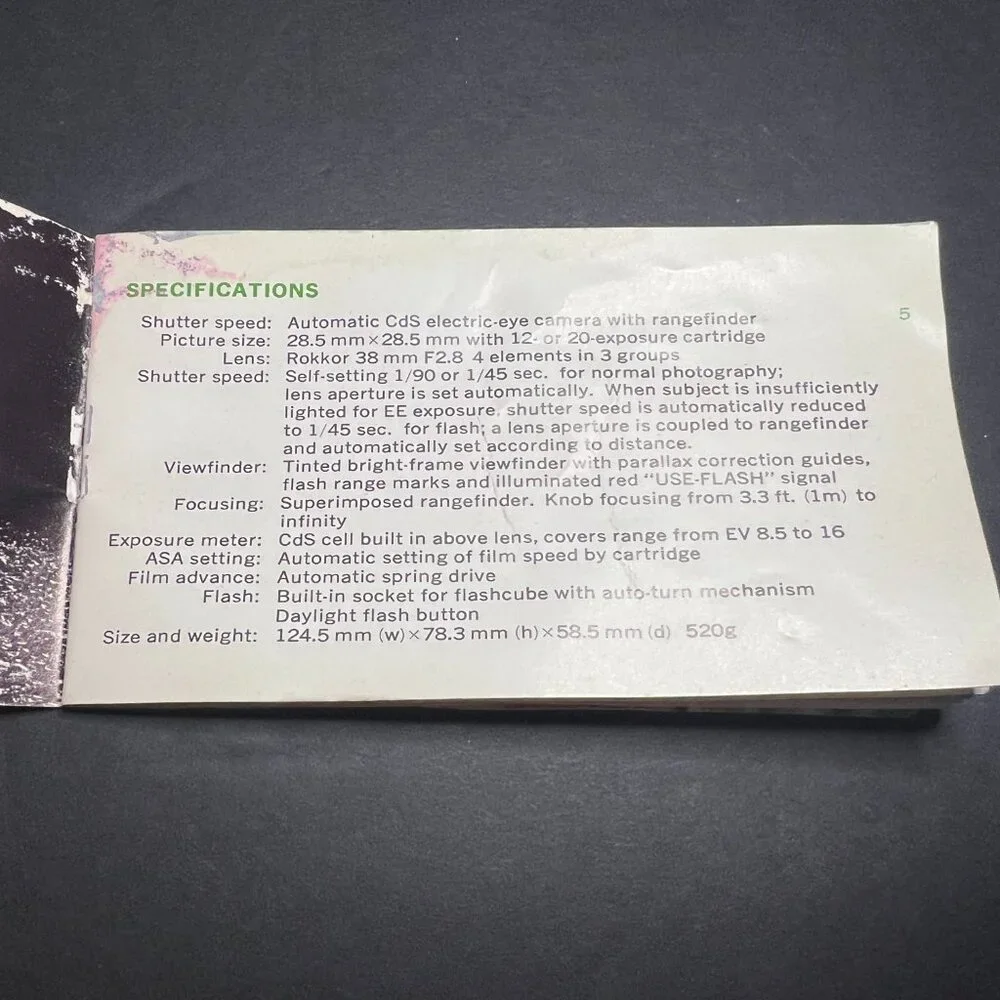 SPECIFICATIONS
5
Shutter speed: Automatic CdS electric-eye camera with rangefinder
Picture size: 28.5 mm×28.5 mm with 12- or 20-exposure cartridge
Lens: Rokkor 38 mm F2.8 4 elements in 3 groups
Shutter speed: Self-setting 1/90 or 1/45 sec. for normal photography;
lens aperture is set automatically. When subject is insufficiently
lighted for EE exposure, shutter speed is automatically reduced
to 1/45 sec. for flash; a lens aperture is coupled to rangefinder
and automatically set according to distance.
Viewfinder: Tinted bright-frame viewfinder with parallax correction guides,
flash range marks and illuminated red "USE-FLASH" signal
Focusing: Superimposed rangefinder. Knob focusing from 3.3 ft. (1m) to
infinity
Exposure meter: CdS cell built in above lens, covers range from EV 8.5 to 16
ASA setting: Automatic setting of film speed by cartridge
Film advance: Automatic spring drive
Flash: Built-in socket for flashcube with auto-turn mechanism
Daylight flash button
Size and weight: 124.5 mm (w)×78.3 mm (h)×58.5 mm (d) 520g